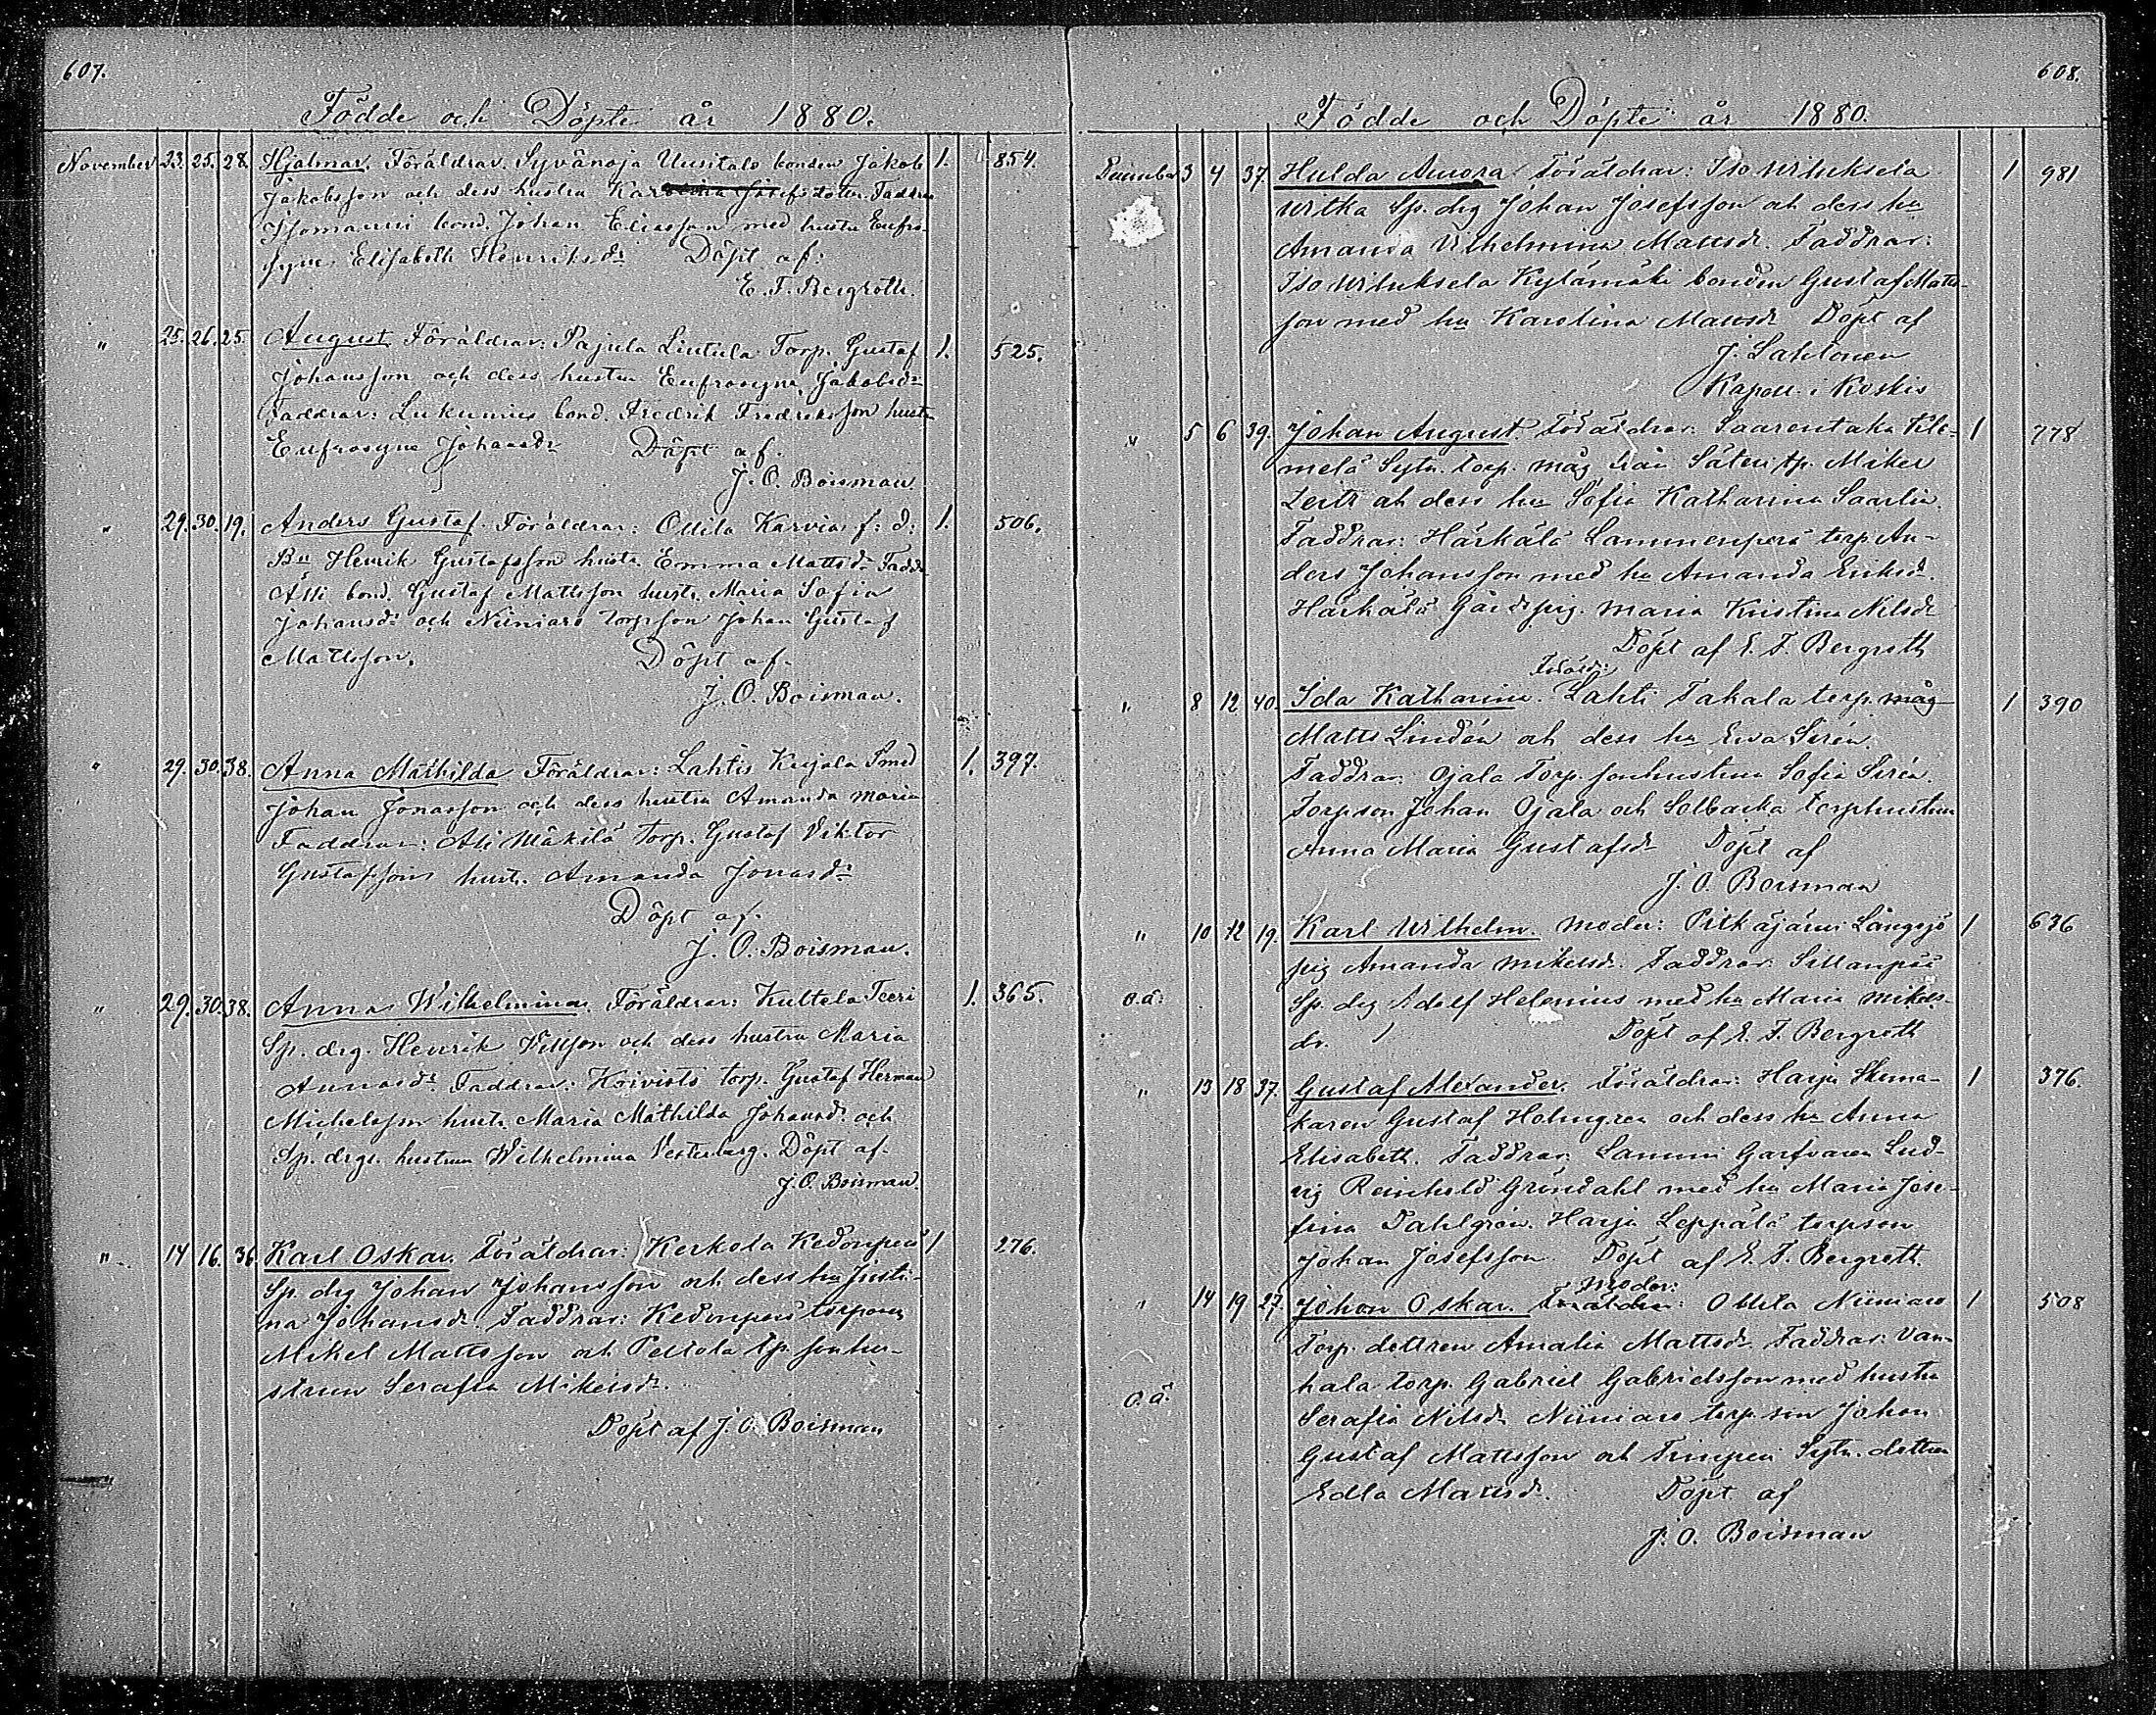 607.
Födde och Döpte år 1880.
November 23. 25. 28. Hjalmar. Föräldrar. Syvänoja Uusitalo bonden Jakob 1. 854.
Jakobsson och dess hustru Karolina Josefsdoter. Faddrar
Isomanni bond. Johan Eliasson med hustru Eufro-
syne Elisabeth Henriksdr Döpt af:
E. F. Bergroth.
" 25. 26. 25. August. Föräldrar: Pajula Lintula Torp. Gustaf 1. 525.
Johansson och dess hustru Eufrosyne Jakobsdr
Faddrar: Lukumies bond. Fredrik Fredriksson hustru
Eufrosyne Johansdr Döpt af.
J. O. Boisman.
" 29. 30. 19. Anders Gustaf. Föräldrar: Ollila Karvias f: d: 1. 506.
Bn Henrik Gustafsson hustr. Emma Mattsdr Fadd.
bond. Gustaf Mattsson hustr. Maria Sofia
Johansdr och Niiniaro torpson Johan Gustaf
Mattsson. Döpt af.
J. O. Boisman.
" 29. 30. 38. Anna Mathilda Föräldrar: Lahtis Kujala Smed 1. 397.
Johan Jonasson och dess hustru Amanda Maria
Faddrar: Ali Mäkilä torp. Gustaf Viktor
Gustafsson hustr. Amanda Jonasdr
Döpt af.
J. O. Boisman.
" 29. 30. 38. Anna Wilhelmina. Föräldrar: Kultela Teeri 1. 365.
Sp. drg. Henrik och dess hustru Maria
Annasdr Faddrar: Koivisto torp. Gustaf Herman
Michelsson hustr. Maria Mathilda Johansdr och
Sp. drgs hustrun Wilhelmina Vesterberg. Döpt af.
J. O. Boisman.
" 14 16. 36. Karl Oskar. Föräldrar: Kerkola Kedonperä 1 276.
Sp. drg Johan Johansson och dess hu Justi-
na Johansdr Faddrar: Kedonperä torparen
Mikel Mattsson och Peltola tp. sonhu-
strun Serafia Mikelsdr.
Döpt af J. O. Boisman
608.
Födde och Döpte år 1880.
December 3 4 37. Hulda Aurora Föräldrar: Iso Wiluksela 1 981
Witka Sp. drg Johan Josefsson och dess hu
Amanda Wilhelmina Mattsdr. Faddrar:
Iso Wiluksela Kylämäki bonden Gustaf Matts-
son med hu Karolina Mattsdr Döpt af
J. Lahtonen
Kapell. i Koskis
" 5 6 39. Johan August. Föräldrar: Saarentaka Kile- 1 778
melä Sytn. torp. måg från Säteri tp. Mikel
och dess hu Sofia Katharina Saarlin.
Faddrar: Härkälä Lammenperä torp. An-
ders Johansson med hu Amanda Eriksdr.
Härkälä Gårds pig. Maria Kristina Nilsdr
Döpt af E. F. Bergroth
Föräldr:
" 8 12 40. Ida Katharina. Lahti Takala torp. måg 1 390
Matts Lindén och dess hu Ewa Sirén.
Faddrar: Ojala Torp. sonhustrun Sofia Sirén.
Torpson Johan Ojala och Solbacka torphustrun
Anna Maria Gustafsdr Döpt af
J. O. Boisman
" 10 12 19. Karl Wilhelm. Moder: Pitkäjärvi Långsjö 1 636
pig Amanda Mikelsdr. Faddrar: Sillanpää
o.ä. Sp. drg Adolf Helenius med hu Maria Mikels-
dr. Döpt af E. F. Bergroth
" 13 18 37. Gustaf Alexander. Föräldrar: Harju Skoma- 1 376.
karen Gustaf Holmgren och dess hu Anna
Elisabeth. Faddrar: Lammi Garfvaren Lud-
vig Reinhold Gröndahl med hu Maria Jose-
fina Dahlgrén. Harju Leppälä torpson
Johan Josefsson. Döpt af E. F. Bergroth.
Moder:
" 14 19 27. Johan Oskar. Föräldrar: Ollila Niiniaro 1 508
Torp. dottren Amalia Mattsdr. Faddrar: Van-
hala torp. Gabriel Gabrielsson med hustru
o.ä. Serafia Nilsdr Niiniaro torp. son Johan
Gustaf Mattsson och Sytn. dottren
Edla Mattsdr. Döpt af
J. O. Boisman